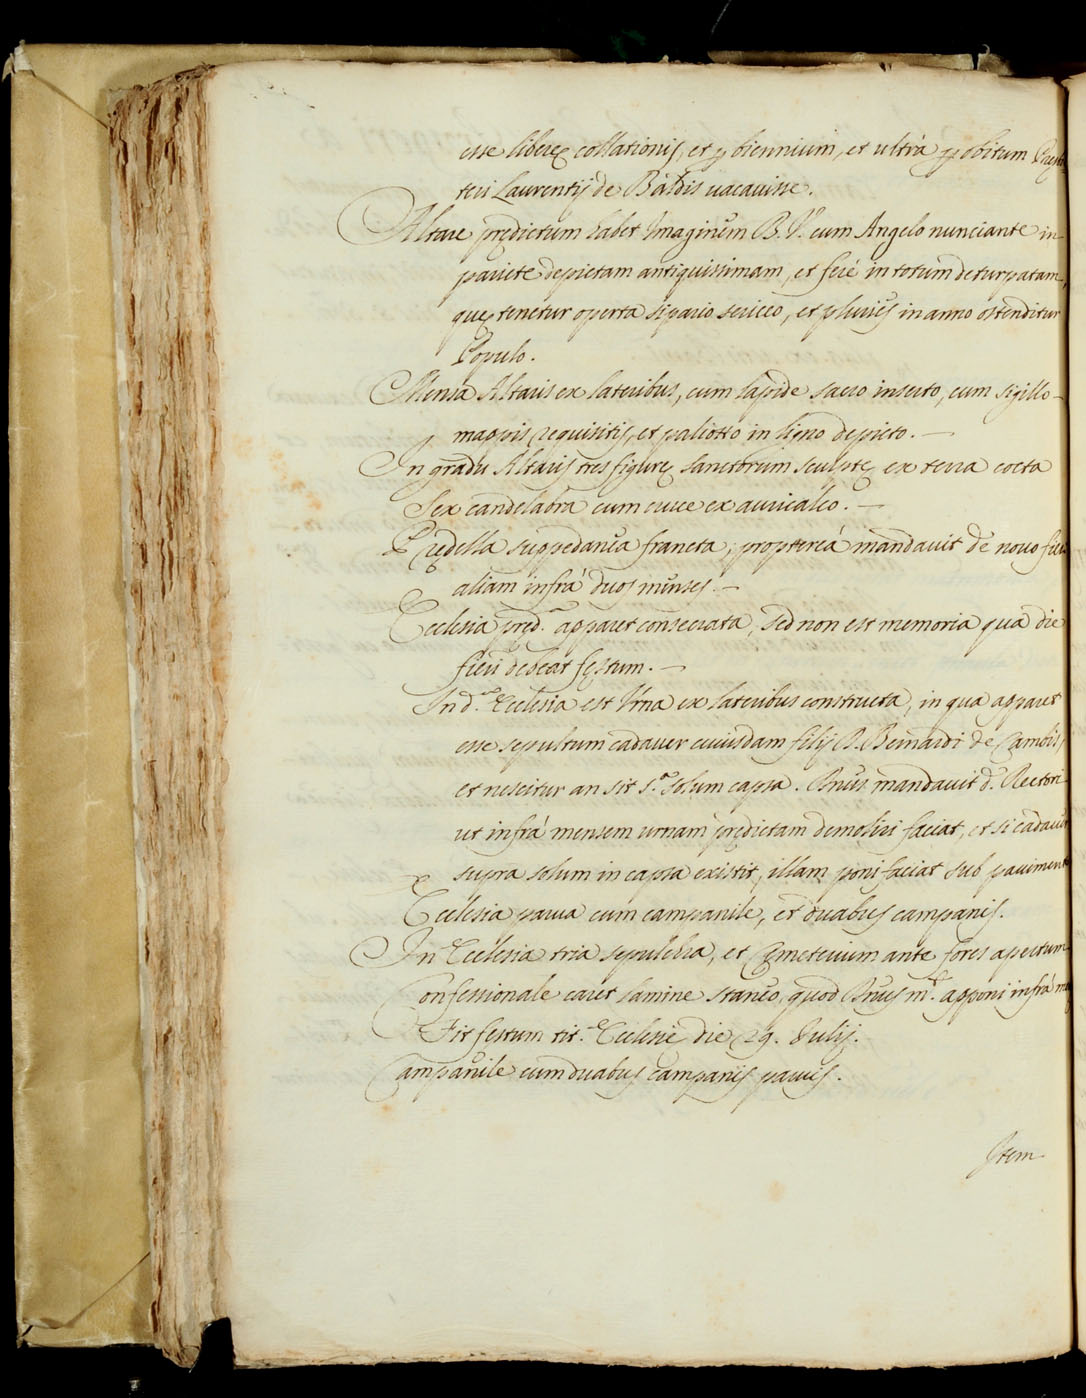 esse liberę collationis, et ꝑ biennium, et ultrà ꝑ obitum Presbi
teri Laurentij de Baldis uacauisse.
Altare prędictum habet Imaginem B. V. cum Angelo nunciante in
pariete depictam antiquissimam, et ferè in totum deturpatam,
quę tenetur operta sipario sericeo, et pluries in anno ostenditur
Populo.
Mensa Altaris ex lateribus, cum lapide sacro inserto, cum sigillo
mappis requisitis, et paliotto in ligno depicto.
In gradu Altaris tres figurę sanctorum sculptę ex terra cocta
Sex candelabra cum cruce ex auricalco.
Prędella suppedanea fracta, proptereà mandauit de nouo fieri
aliam infrà duos menses.
Ecclesia pręd.ᵃ apparet consecrata, sed non est memoria qua die
fieri debeat festum.
In d.ᵃ Ecclesia est Vrna ex lateribus constructa, in qua apparet
esse sepultum cadauer cuiusdam filij D. Bernardi de Zambis,
et nescitur an sit s.ᵃ solum capsa. mandauit d.º Rectori
ut infrà mensem urnam prędictam demoliri faciat, et si cadauer
supra solum in capsa existit, illam poni faciat sub pauimento
Ecclesia parua cum campanile, et duabus campanis.
In Ecclesia tria sepulchra, et Cęmeterium ante fores apertum
Confessionale caret lamine staneo, quod apponi infrà
Fit festum tit. Ecclesię die 29. Iulij.
Campanile cum duabus campanis paruis.
Item